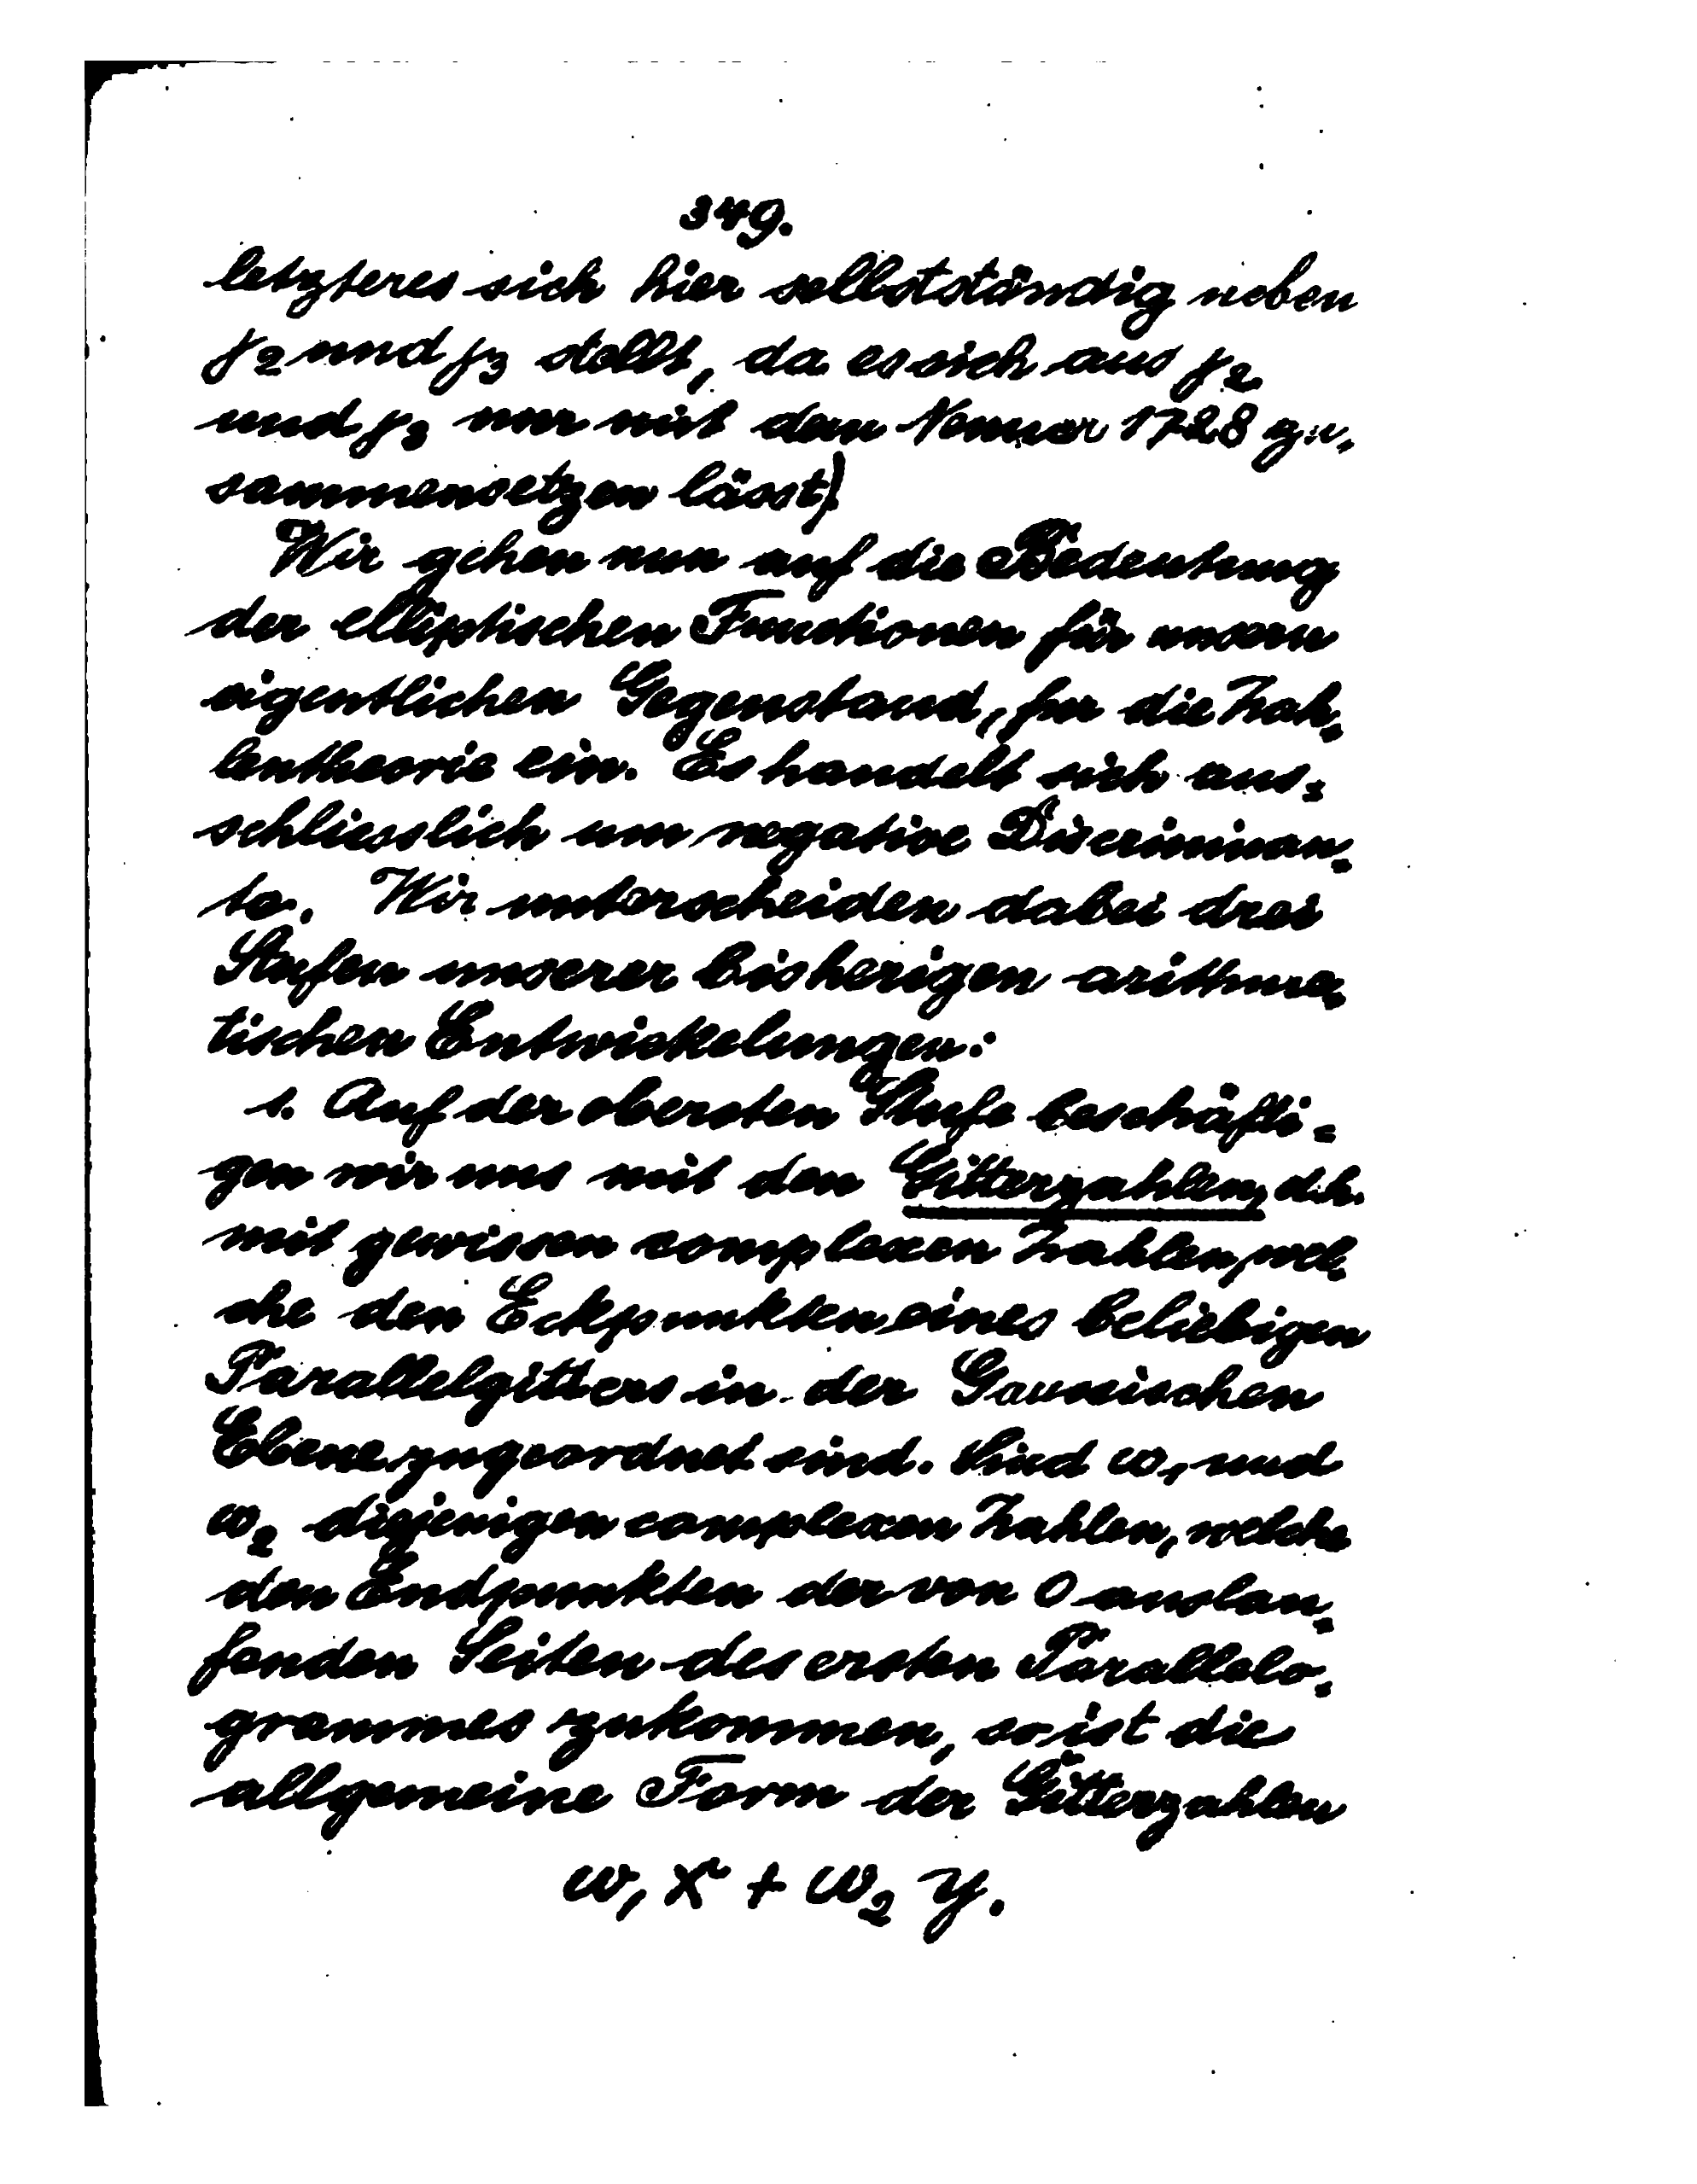 349.
letzteres sich hier selbstständig neben
γ₂ und γ₃ stellt, da es sich aus γ₂
und γ₃ nur mit dem Nenner 1728 zu-
sammensetzen lässt)
Wir gehen nun auf die Bedeutung
der elliptischen Functionen für unseren
eigentlichen Gegenstand, für die Zah-
lentheorie ein. Es handelt sich aus-
schliesslich um negative Discriminan-
te. Wir unterscheiden dabei drei
Stufen unserer bisherigen arithme-
tischen Entwickelungen:
1. Auf der obersten Stufe beschäfti-
gen wir uns mit den Gitterzahlen, d.h.
mit gewissen complexen Zahlen, wel-
che den Eckpunkten eines beliebigen
Parallelgitters in der Gaussischen
Ebene zugeordnet sind. Sind ω₁ und
ω₂ diejenigen complexen Zahlen, welche
den Endpunkten der von O auslau-
fenden Seiten des ersten Parallelo-
grammes zukommen, so ist die
allgemeine Form der Gitterzahlen
ω₁ x + ω₂ y.